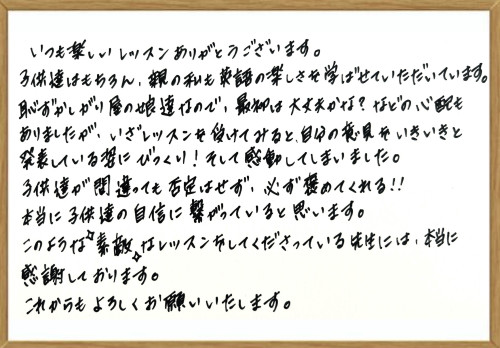 いつも楽しいレッスンありがとうございます。
子供達はもちろん、親の私も英語の楽しさを学ばせていただいています。
恥ずかしがり屋の娘達なので、最初は大丈夫かな？などの心配も
ありましたが、いざレッスンを受けてみると、自分の意見をいきいきと
発表している姿にびっくり！そして感動してしまいました。
子供達が間違っても否定はせず、必ず褒めてくれる!!
本当に子供達の自信に繋がっていると思います。
このような素敵なレッスンをしてくださっている先生には、本当に
感謝しております。
これからもよろしくお願いいたします。